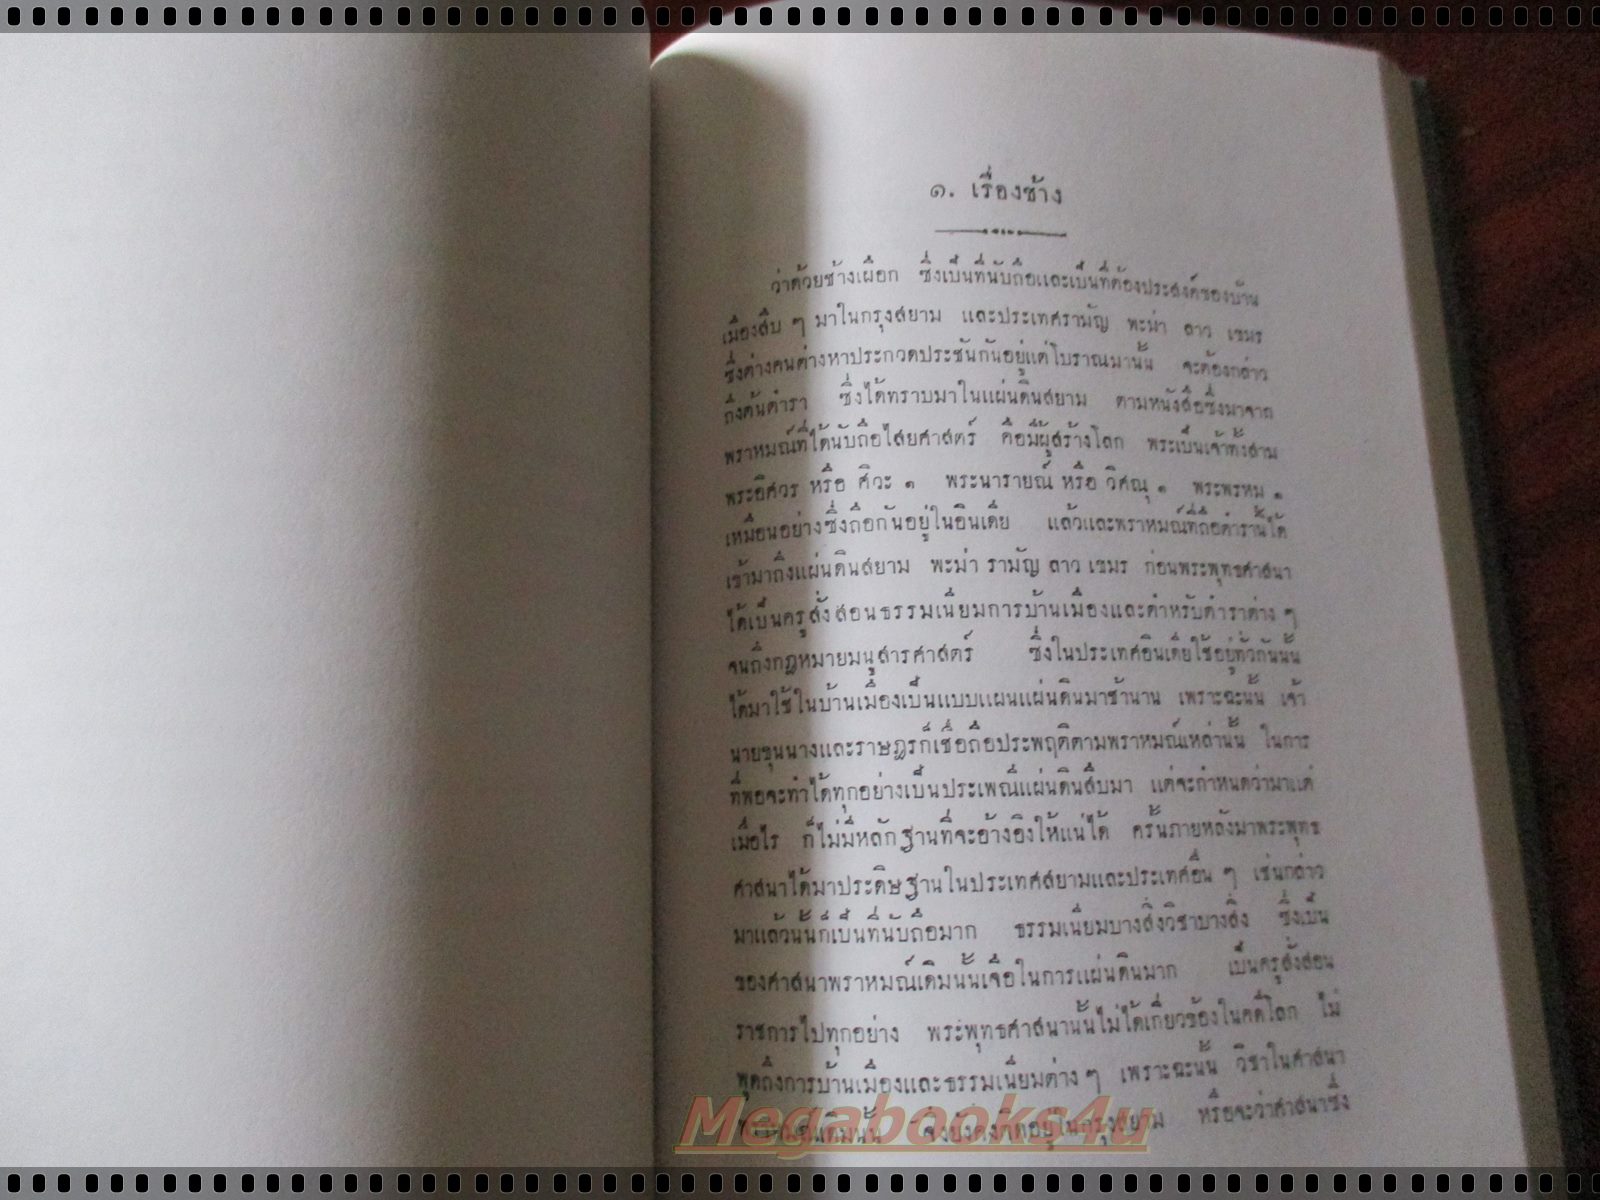 ๑. เรื่องช้าง
ว่าด้วยช้างเผือก ซึ่งเป็นที่นับถือและเป็นที่ต้องประสงค์ของบ้าน
เมืองสืบ ๆ มาในกรุงสยาม และประเทศรามัญ พะม่า ลาว เขมร
ซึ่งต่างคนต่างหาประกวดประชันกันอยู่แต่โบราณมานั้น จะต้องกล่าว
ถึงต้นตำรา ซึ่งได้ทราบมาในแผ่นดินสยาม ตามหนังสือซึ่งมาจาก
พราหมณ์ที่ได้นับถือไสยศาสตร์ คือมีผู้สร้างโลก พระเป็นเจ้าทั้งสาม
พระอิศวร หรือ ศิวะ ๑ พระนารายณ์ หรือ วิศณุ ๑ พระพรหม ๑
เหมือนอย่างซึ่งถือกันอยู่ในอินเดีย แล้วและพราหมณ์ที่ถือตำรานี้ได้
เข้ามาถึงแผ่นดินสยาม พะม่า รามัญ ลาว เขมร ก่อนพระพุทธศาสนา
ได้เป็นครูสั่งสอนธรรมเนียมการบ้านเมืองและตำหรับตำราต่าง ๆ
จนถึงกฎหมายมนูสารศาสตร์ ซึ่งในประเทศอินเดียใช้อยู่ทั่วกันนั้น
ได้มาใช้ในบ้านเมืองเป็นแบบแผนแผ่นดินมาช้านาน เพราะฉะนั้น เจ้า
นายขุนนางและราษฎรก็เชื่อถือประพฤติตามพราหมณ์เหล่านั้น ในการ
ที่พอจะทำได้ทุกอย่างเป็นประเพณีแผ่นดินสืบมา แต่จะกำหนดว่ามาแต่
เมื่อไร ก็ไม่มีหลักฐานที่จะอ้างอิงให้แน่ได้ ครั้นภายหลังมาพระพุทธ
ศาสนาได้มาประดิษฐานในประเทศสยามและประเทศอื่น ๆ เช่นกล่าว
มาแล้วนั้นก็เป็นที่นับถือมาก ธรรมเนียมบางสิ่งวิชาบางสิ่ง ซึ่งเป็น
ของศาสนาพราหมณ์เดิมนั้นเจือในการแผ่นดินมาก เป็นครูสั่งสอน
ราชการไปทุกอย่าง พระพุทธศาสนานั้นไม่ได้เกี่ยวข้องในคดีโลก ไม่
พูดถึงการบ้านเมืองและธรรมเนียมต่าง ๆ เพราะฉะนั้น วิชาในศาสนา
พราหมณ์เดิมนั้น จึงยังคงติดอยู่ในกรุงสยาม หรือจะว่าศาสนาซึ่ง
Megabooks4u